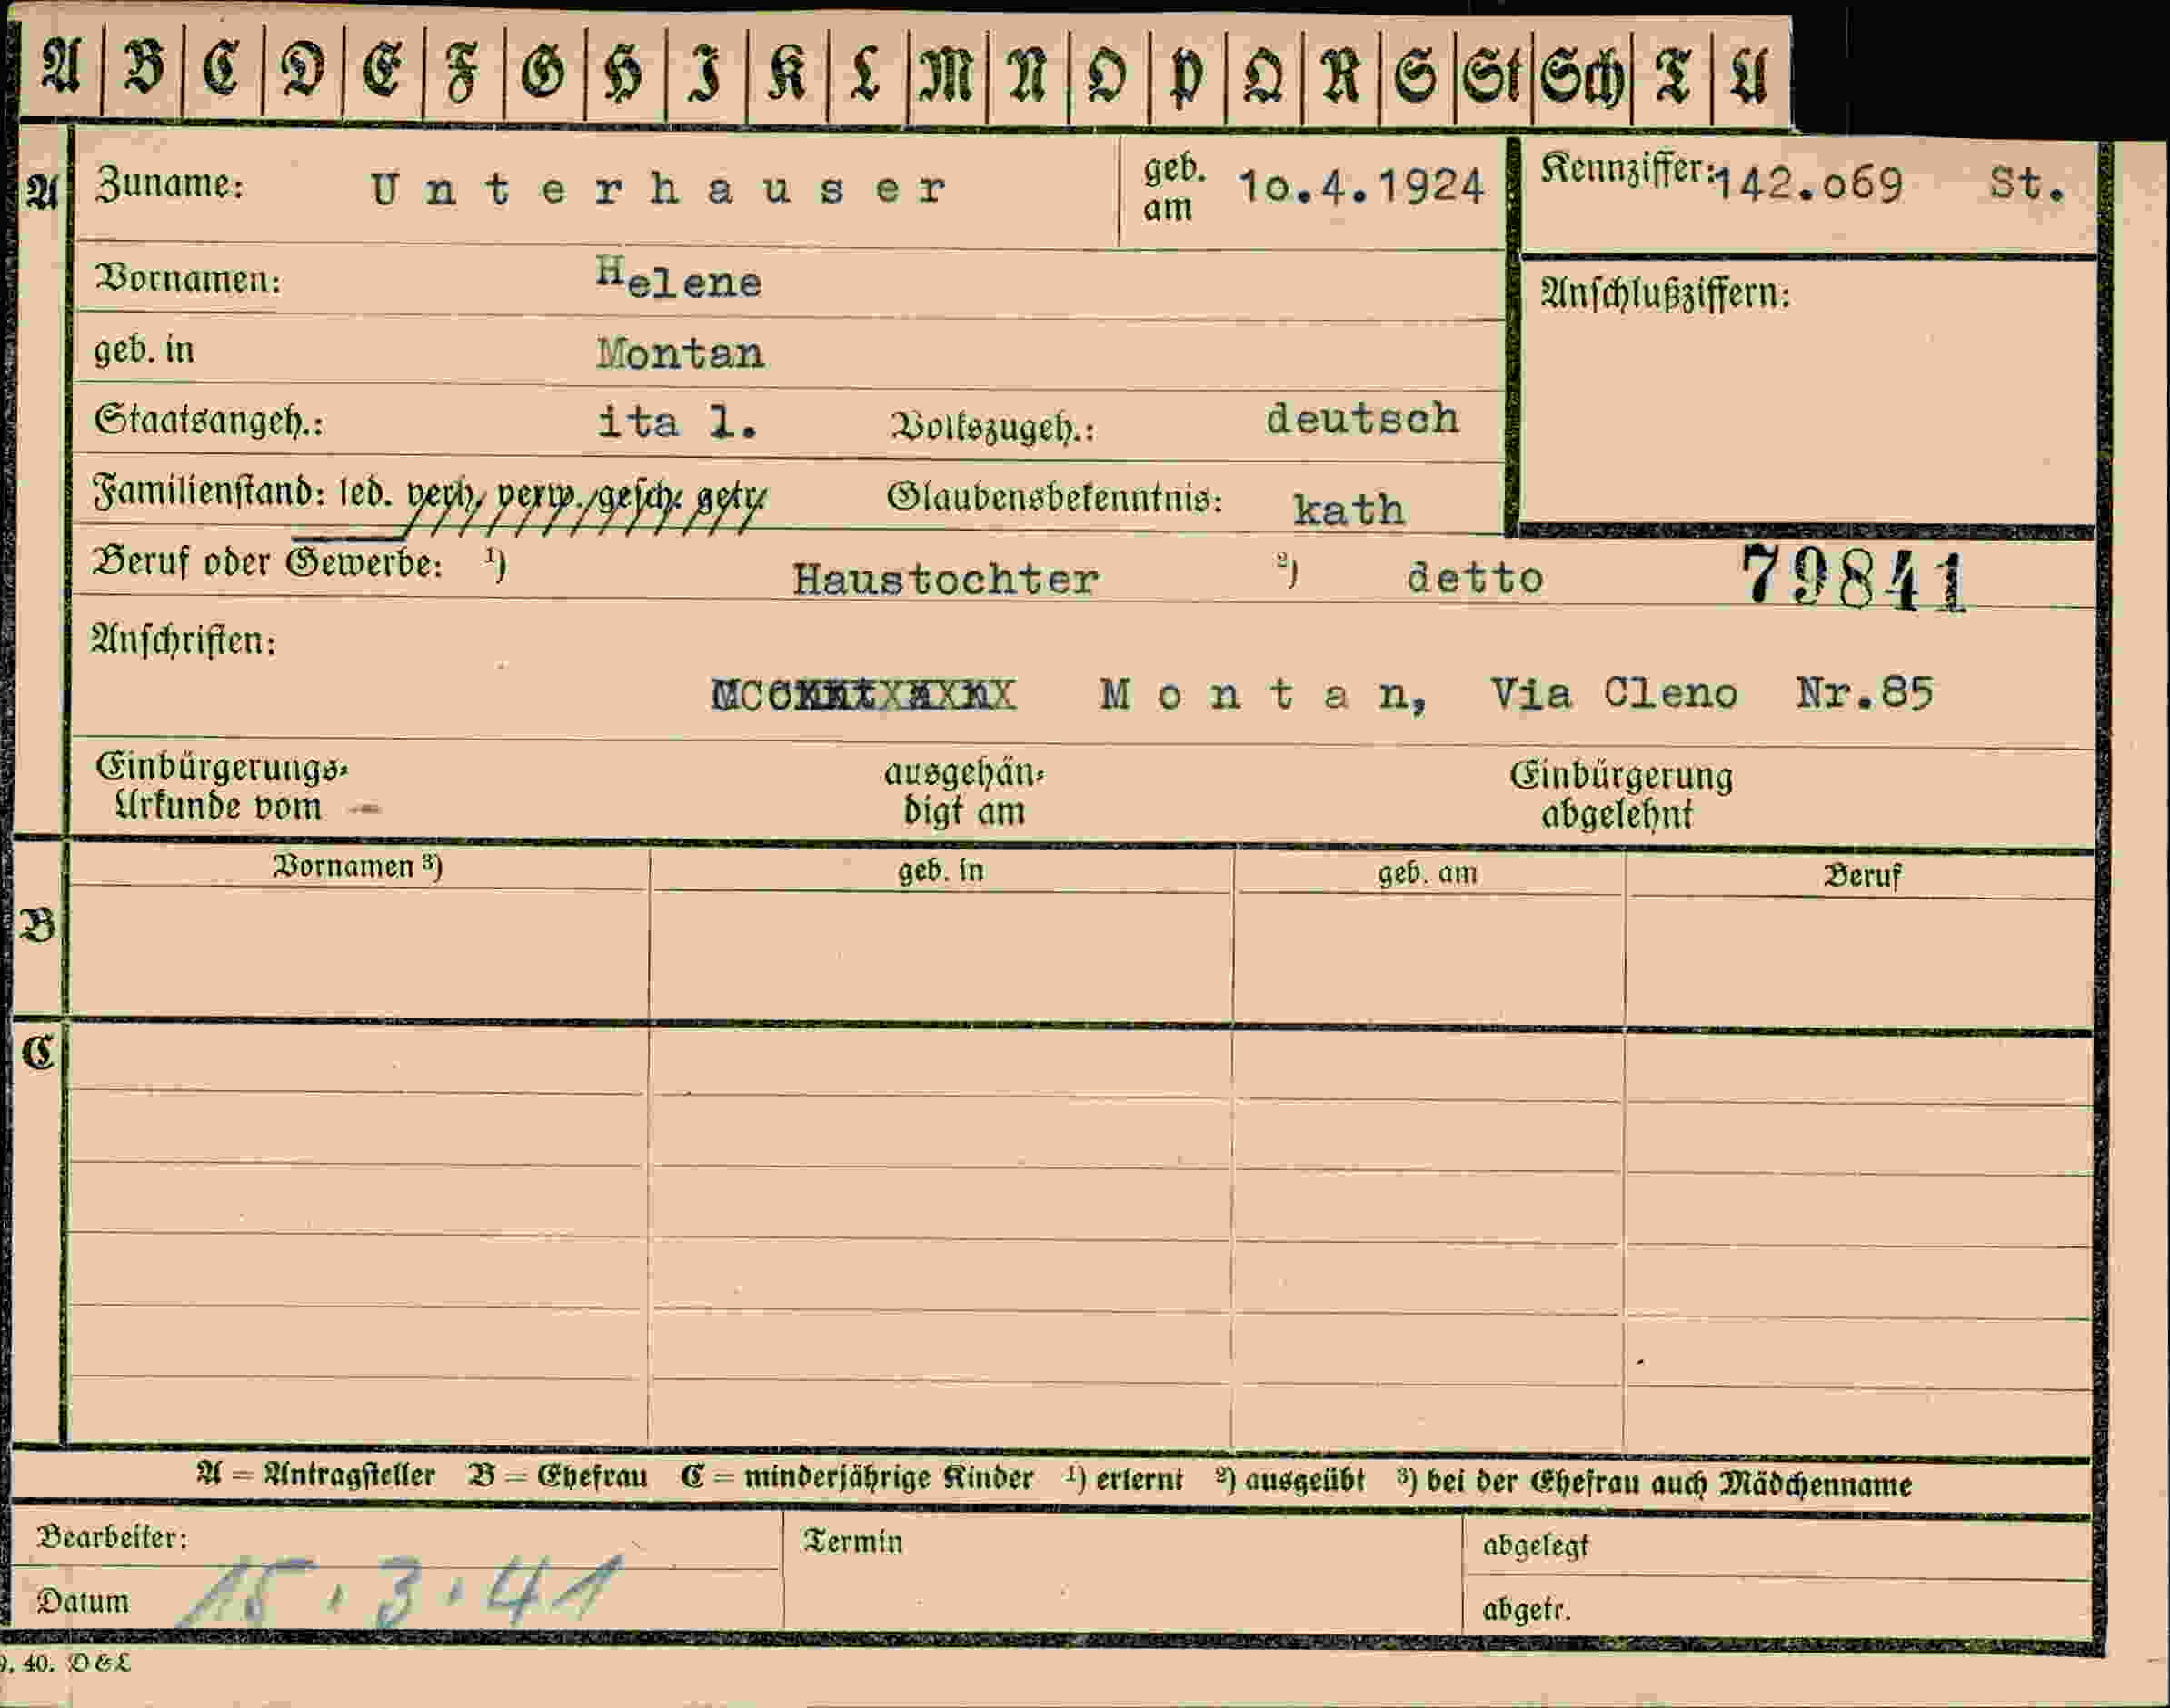 A B C D E F G H I K L M N O P Q R S St Sch T U
A Zuname: Unterhauser geb. am 10.4.1924 Kennziffer: 142.069 St.
Vornamen: Helene Anschlußziffern:
geb. in Montan
Staatsangeh.: ita l. Volkszugeh.: deutsch
Familienstand: led. verh. verw. gesch. getr. Glaubensbekenntnis: kath
Beruf oder Gewerbe: 1) Haustochter 2) detto 79841
Anschriften:
Montan, Via Cleno Nr.85
Einbürgerungs= ausgehän= Einbürgerung
Urkunde vom digt am abgelehnt
Vornamen 3) geb. in geb. am Beruf
B
C
A = Antragsteller B = Ehefrau C = minderjährige Kinder 1) erlernt 2) ausgeübt 3) bei der Ehefrau auch Mädchenname
Bearbeiter: Termin abgelegt
Datum 15.3.41 abgetr.
9, 40. O & L